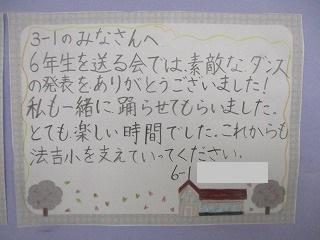 3-1のみなさんへ
6年生を送る会では、素敵なダンス
の発表をありがとうございました!
私も一緒に踊らせてもらいました。
とても楽しい時間でした。これからも
法吉小を支えていってください。
6-1